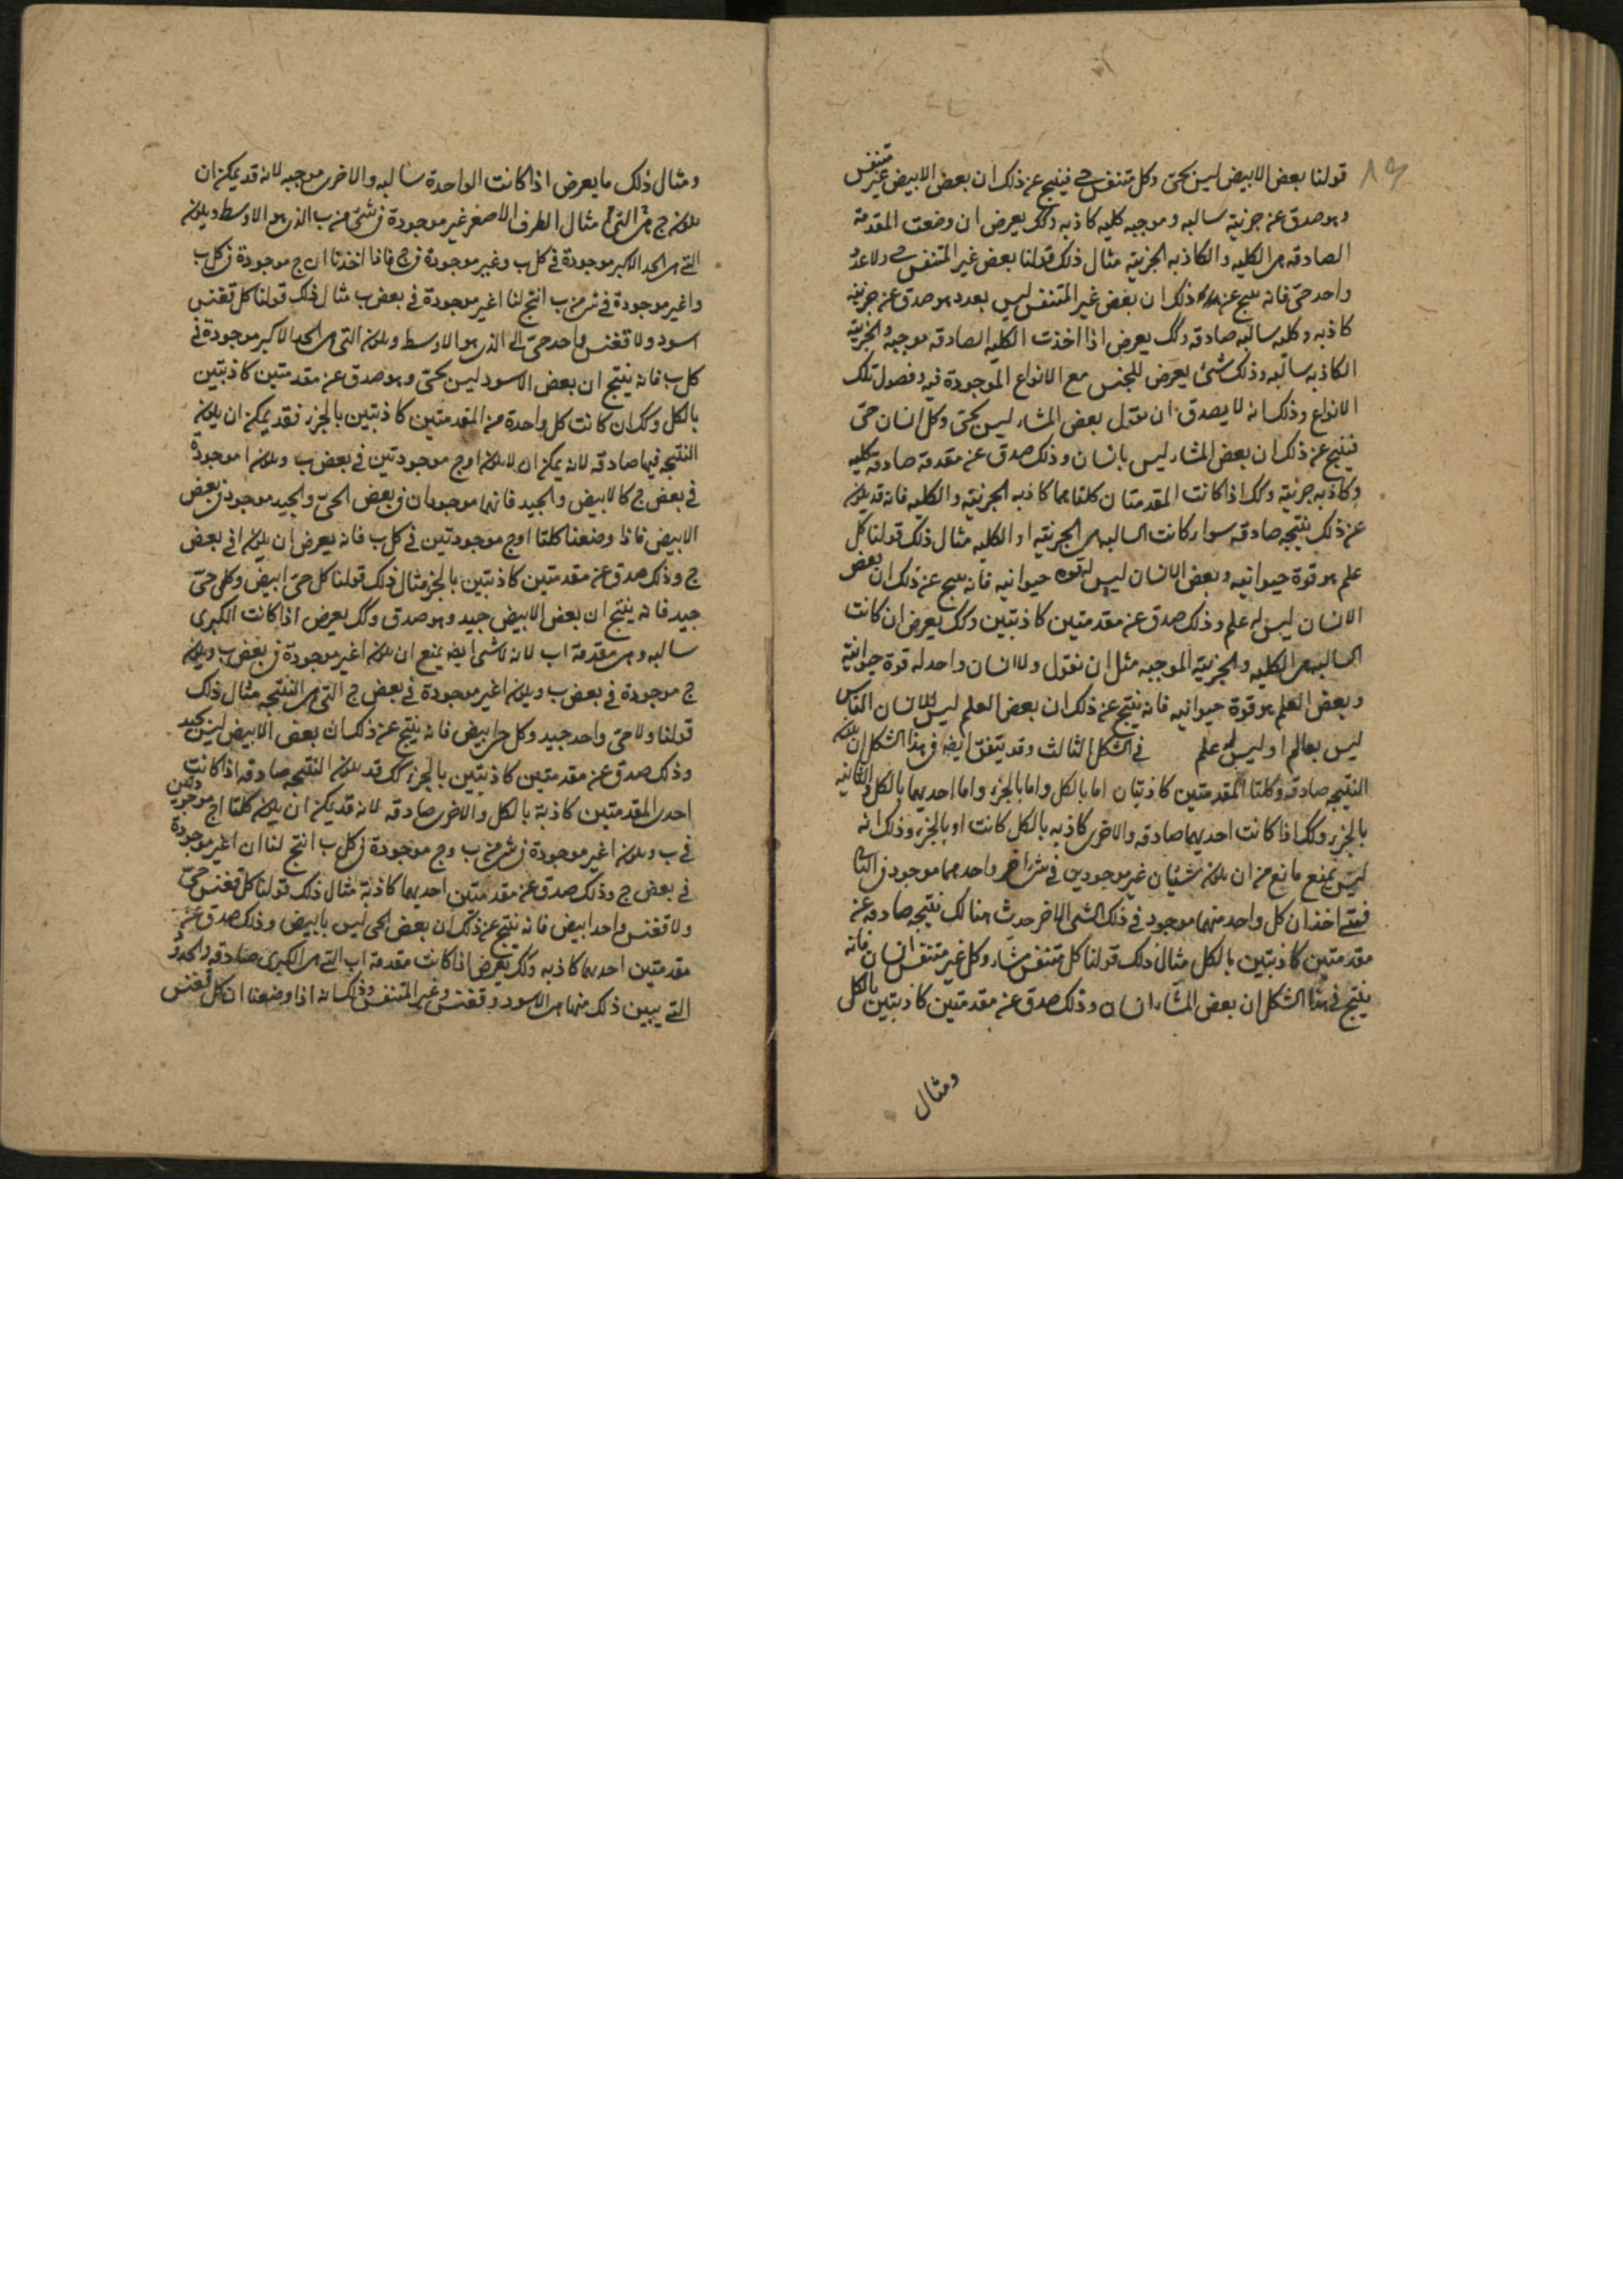 قولنا بعض الابيض ليس بحى وكل متنفس حى فينتج عن ذلك ان بعض الابيض غير متنفس
وهو صدق عن جزئية سالبه وموجبه كليه كاذبه وكك يعرض ان وضعت المقدمة
الصادقه هى الكليه والكاذبه الجزئيه مثال ذلك قولنا بعض غير المتنفس حى ولا عدد
واحد حى فانه ينتج عن ذلك ان بعض غير المتنفس ليس بعدد وهو صدق عن جزئيه
كاذبه وكليه سالبه صادقه وكك يعرض اذا اخذت الكليه الصادقه موجبه والجزئيه
الكاذبه سالبه وذلك شئ يعرض للجنس مع الانواع الموجودة فيه وفصول تلك
الانواع وذلك انه لا يصدق ان نقول بعض المشاء ليس بحى وكل انسان حى
فينتج عن ذلك ان بعض المشاء ليس بانسان وذلك صدق عن مقدمة صادقه كليه
وكاذبه جزئيه وكك اذا كانت المقدمتان كلتاهما كاذبه الجزئيه والكليه فانه قد يكون
عن ذلك نتيجه صادقه سواء كانت السالبه هى الجزئيه او الكليه مثال ذلك قولنا كل
علم هو قوة حيوانيه وبعض الانسان ليس له قوه حيوانيه فانه ينتج عن ذلك ان بعض
الانسان ليس له علم وذلك صدق عن مقدمتين كاذبتين وكك يعرض ان كانت
السالبه هى الكليه والجزئيه الموجبه مثل ان نقول ولا انسان واحد له قوة حيوانيه
وبعض العلم هو قوة حيوانيه فانه ينتج عن ذلك ان بعض العلم ليس للانسان الناس
ليس بعالم او ليس له علم في الشكل الثالث وقد يتفق ايضه فى هذا الشكل ان يكون
النتيجه صادقه وكلتا المقدمتين كاذبتان اما بالكل واما بالجزء واما احديهما بالكل والثانيه
بالجزء وكك اذا كانت احديهما صادقه والاخرى كاذبه بالكل كانت او بالجزء وذلك انه
ليس يمنع مانع من ان يكون شيئان غير موجودين فى شئ اخر واحدهما موجود فى الثانى
فمتى اخذ ان كل واحد منهما موجود فى ذلك الشئ الاخر حدث هنالك نتيجه صادقه عن
مقدمتين كاذبتين بالكل مثال ذلك قولنا كل متنفس مشاء وكل غير متنفس انسان فانه
ينتج فى هذا الشكل ان بعض المشاء انسان وذلك صدق عن مقدمتين كاذبتين بالكل
ومثال
ومثال ذلك ما يعرض اذا كانت الواحدة سالبه والاخرى موجبه لانه قد يمكن ان
يكون ج هى التى مثال الطرف الاصغر غير موجودة فى شئ من ب الذى هو الاوسط ويكون
التى هى الحد الاكبر موجودة فى كل ب وغير موجودة فى ج فاذا اخذنا ان ج موجودة فى كل ب
وا غير موجودة فى شئ من ب انتج لنا ا غير موجودة فى بعض ب مثال ذلك قولنا كل ققنس
اسود ولا ققنس واحد حى الى الذى هو الاوسط ويكون التى هى الحد الاكبر موجودة فى
كل ب فانه ينتج ان بعض الاسود ليس بحى وهو صدق عن مقدمتين كاذبتين
بالكل وكك ان كانت كل واحدة من المقدمتين كاذبتين بالجزء فقد يمكن ان يكون
النتيجه فيها صادقه لانه يمكن ان لا يكون ا وج موجودتين فى بعض ب ويكون ا موجودة
فى بعض ج كالابيض والجيد فانهما موجودان فى بعض الحى والجيد موجود فى بعض
الابيض فاذا وضعنا كلتا ا وج موجودتين فى كل ب فانه يعرض ان يكون ا فى بعض
ج وذلك صدق عن مقدمتين كاذبتين بالجزء مثال ذلك قولنا كل حى ابيض وكل حى
جيد فانه ينتج ان بعض الابيض جيد وهو صدق وكك يعرض اذا كانت الكبرى
سالبه وهى مقدمة اب لانه لا شى ايضه يمنع ان يكون ا غير موجودة فى بعض ب ويكون
ج موجودة فى بعض ب ويكون ا غير موجودة فى بعض ج التى هى النتيجه مثال ذلك
قولنا ولا حى واحد جيد وكل حى ابيض فانه ينتج عن ذلك ان بعض الابيض ليس بجيد
وذلك صدق عن مقدمتين كاذبتين بالجزء كك قد يكون النتيجه صادقه اذا كانت
احدى المقدمتين كاذبة بالكل والاخرى صادقه لانه قد يمكن ان يكون كلتا ا ج موجودتين
فى ب ويكون ا غير موجودة فى شئ من ب وج موجودة فى كل ب انتج لنا ان ا غير موجودة
فى بعض ج وذلك صدق عن مقدمتين احديهما كاذبة مثال ذلك قولنا كل ققنس حى
ولا ققنس واحد ابيض فانه ينتج عن ذلك ان بعض الحى ليس بابيض وذلك صدق عن
مقدمتين احديهما كاذبه وكك يعرض اذا كانت مقدمة اب التى هى الكبرى صادقه والحدود
التى يبين ذلك منها هى الاسود وققنس وغير المتنفس وذلك انه اذا وضعنا ان كل ققنس